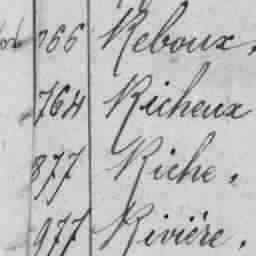 766 Reboux.
764 Richeux
877 Riche.
977 Rivière.